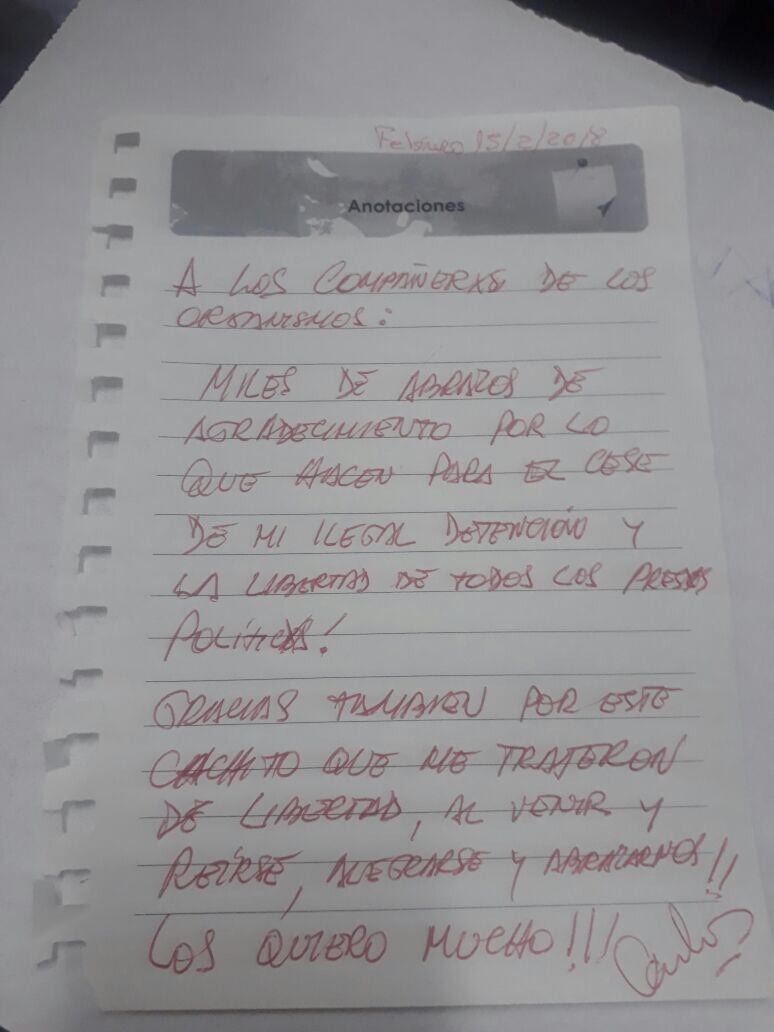 Febrero 15/2/2018
Anotaciones
A LOS COMPAÑERXS DE LOS
ORGANISMOS:
MILES DE ABRAZOS DE
AGRADECIMIENTO POR LO
QUE HACEN PARA EL CESE
DE MI ILEGAL DETENCIÓN Y
LA LIBERTAD DE TODOS LOS PRESXS
POLÍTICXS!
GRACIAS TAMBIEN POR ESTE
CACHITO QUE ME TRAJERON
DE LIBERTAD, AL VENIR Y
REÍRSE, ALEGRARSE Y ABRAZARNOS!!
LOS QUIERO MUCHO!!! Carlos